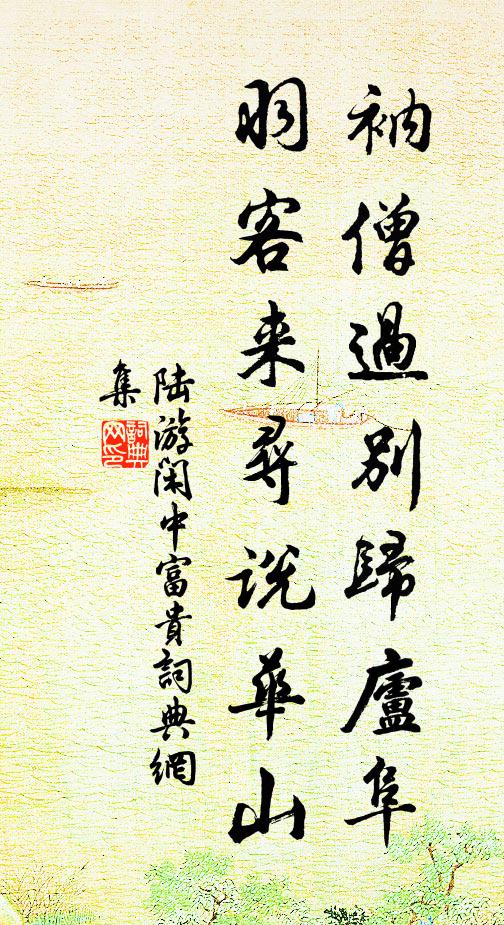 衲僧過別歸廬阜
羽客来尋說華山
陆游闲中富貴詞典網
集
詞典
网印